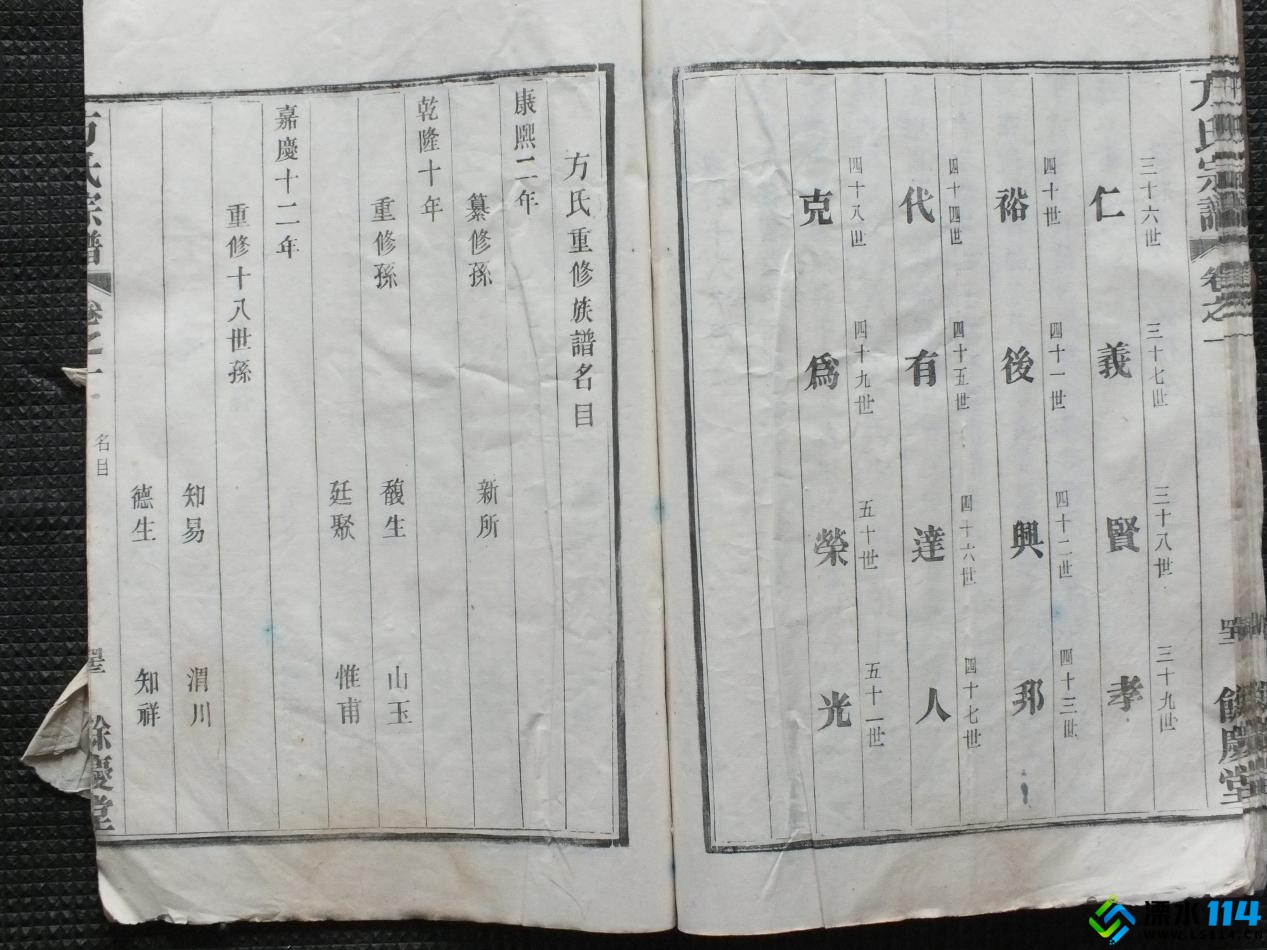 方氏宗譜
卷之一
餘慶堂
三十六世
三十七世
三十八世
三十九世
仁義賢孝
四十世
四十一世
四十二世
四十三世
裕後興邦
四十四世
四十五世
四十六世
四十七世
代有達人
四十八世
四十九世
五十世
五十一世
克為榮光
方氏重修族譜名目
康熙二年
纂修孫 新所
乾隆十年
重修孫 馥生 山玉
廷聚 惟甫
嘉慶十二年
重修十八世孫
知易 渭川
德生 知祥
方氏宗譜
卷之一
名目
餘慶堂
溧水114
www.LS114.cn